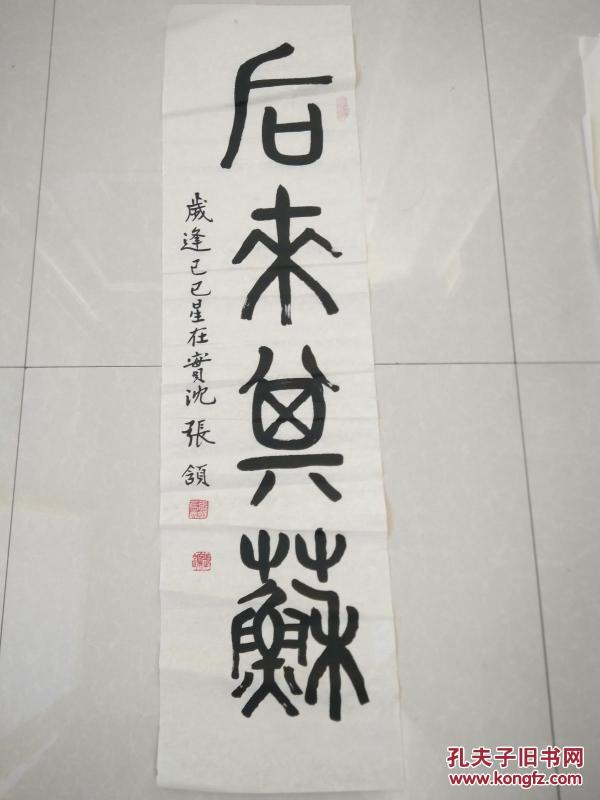 后來其蘇
歲逢己巳星在實沈 張頷
孔夫子旧书网
www.kongfz.com